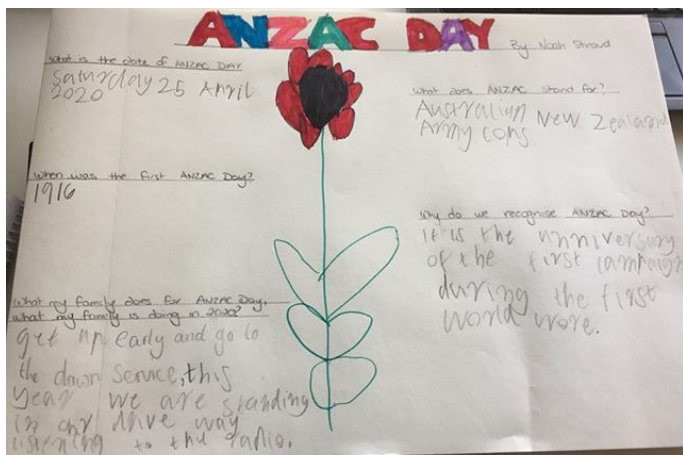 ANZAC DAY By Noah Stroud
What is the date of ANZAC DAY
Saturday 25 April
2020
When was the first ANZAC Day?
1916
What my family does for ANZAC Day.
What my family is doing in 2020?
get up early and go to
the dawn service, this
year we are standing
in our drive way
listening to the radio.
What does ANZAC stand for?
Australian New Zealand
Army cops
Why do we recognise ANZAC Day?
It is the anniversary
of the first campaign
during the first
world wore.